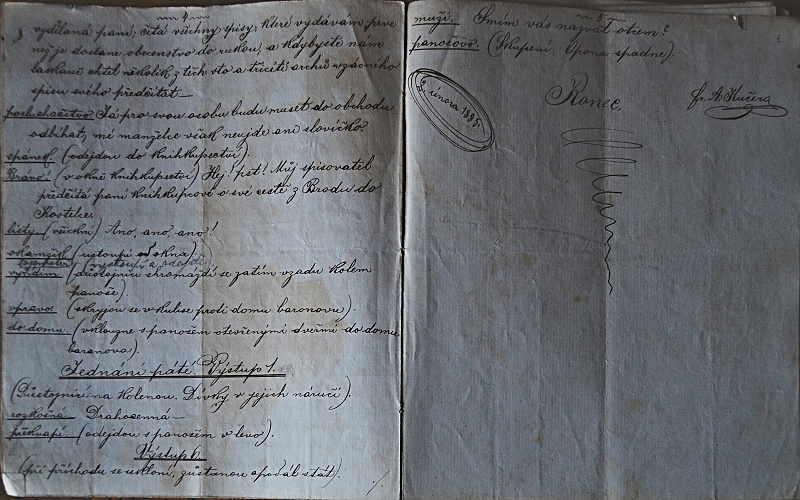 4
vzdělaná paní; čítá všechny spisy, které vydávám, prve
nej je dostane obecenstvo do rukou, a kdybyste nám
laskavě chtěl několik z těch sto a třicíti archů vzácného
spisu svého předčítat—
Já pro svou osobu budu muset do obchodu
odbíhat, mé manželce však neujde ani slovíčko?
spánek. (odejdou do knihkupectví).
Bravo! (v okně knihkupectví) Hej! pst! Můj spisovatel
předčítá paní knihkupcové o své cestě z Brodu do
Kostelce.
listy. (všickni) Ano, ano, ano!
okamžik (ustoupí od okna)
vyřídím (důstojníci shromáždí se zatím vzadu kolem
panoše).
vpravo. (skryjou se v kulise proti domu baronovu).
do domu. (vklouzne s panošem otevřenými dveřmi do domu
baronova).
Jednání páté Výstup 1.
(Důstojníci na kolenou. Dívky v jejich náručí).
rozkošná Drahocenná—
překvapí. (odejdou s panošem v levo).
Výstup 6.
(při příchodu se ukloní, zůstanou opodál stát).
5
muži. Smím vás nazvat otcem?
panošově. (Skupení. Opona spadne)
2. února 1895.
Konec.
Fr. A. Kučera